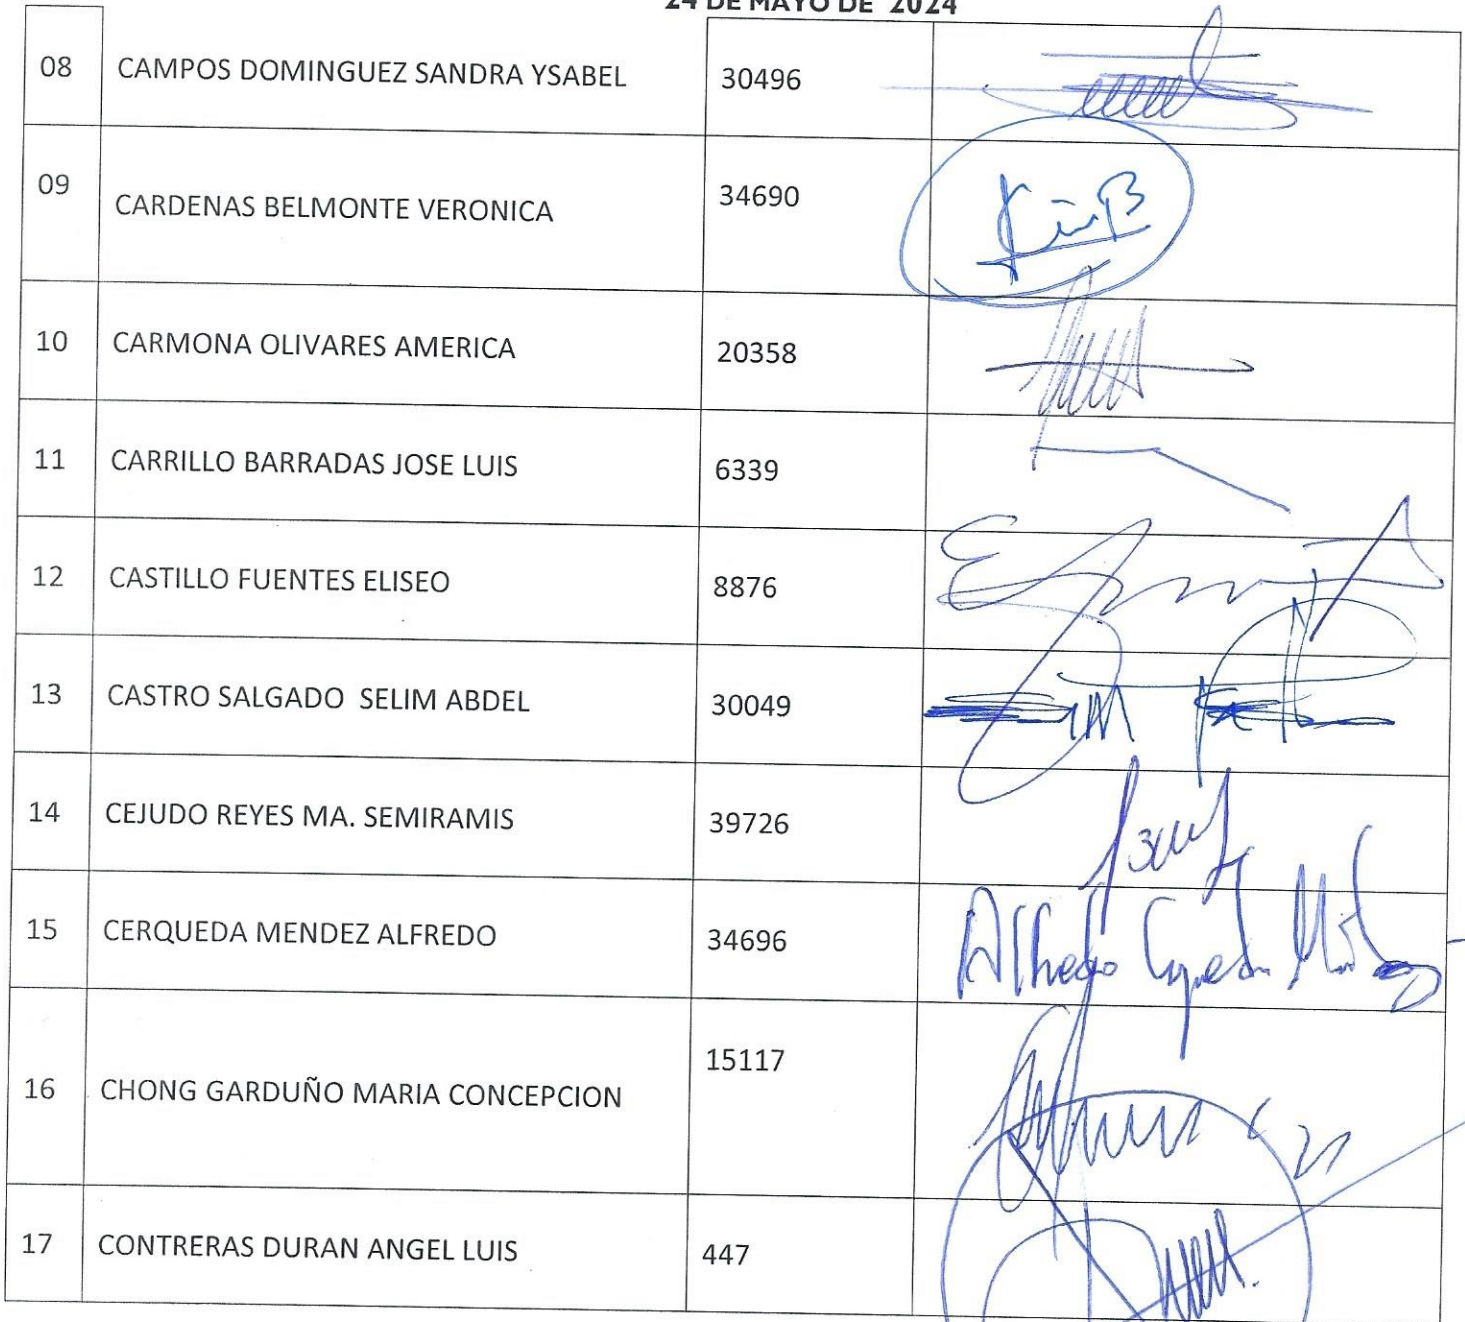 24 DE MAYO DE 2024
08 CAMPOS DOMINGUEZ SANDRA YSABEL 30496
09 CARDENAS BELMONTE VERONICA 34690
10 CARMONA OLIVARES AMERICA 20358
11 CARRILLO BARRADAS JOSE LUIS 6339
12 CASTILLO FUENTES ELISEO 8876
13 CASTRO SALGADO SELIM ABDEL 30049
14 CEJUDO REYES MA. SEMIRAMIS 39726
15 CERQUEDA MENDEZ ALFREDO 34696 Alfredo
16 CHONG GARDUÑO MARIA CONCEPCION 15117
17 CONTRERAS DURAN ANGEL LUIS 447